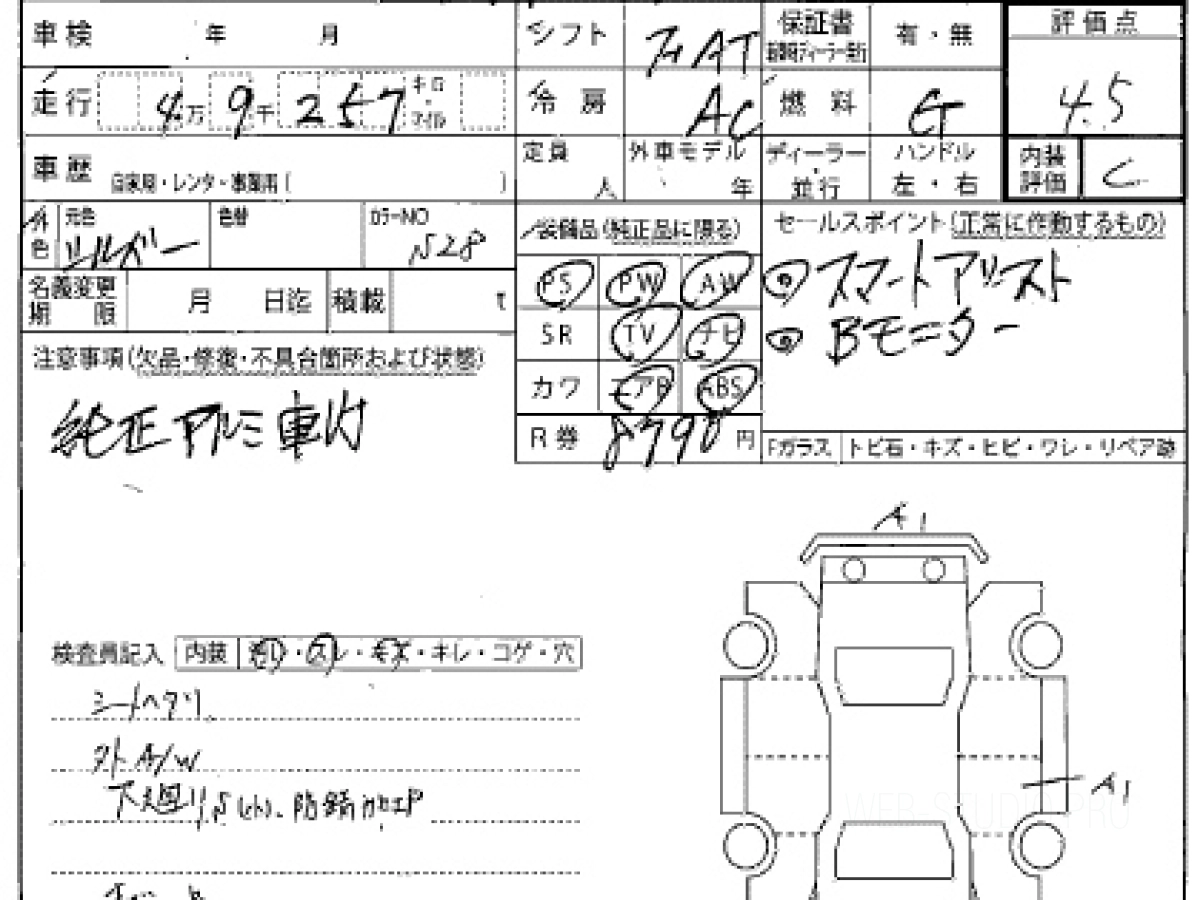 車検 年 月 シフト AT 保証書 有・無 評価点
走行 4万9千257 キロ・マイル 冷房 AC 燃料 G 4.5
車歴 自家用・レンタ・事業用( ) 定員 人 外車モデル 年 ディーラー・並行 ハンドル 左・右 内装評価 C
外色 元色 シルバー 色替 カラーNO N28
装備品(純正品に限る) セールスポイント(正常に作動するもの)
名義変更期限 月 日迄 積載 t
PS PW AW スマートアシスト
SR TV ナビ Bモニター
カワ エアB ABS
注意事項(欠品・修復・不具合箇所および状態)
純正アルミ車付
R券 8790円 Fガラス トビ石・キズ・ヒビ・ワレ・リペア跡
A1
検査員記入 内装 ・スレ・キズ・キレ・コゲ・穴
シートヘタリ
外A/W
下廻りS(小)、防錆加工P
A1
WEB-STUDIO.PRO